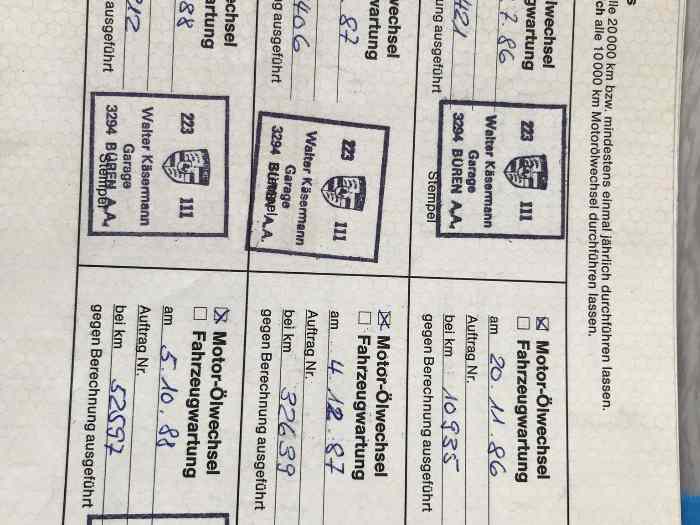 lle 20 000 km bzw. mindestens einmal jährlich durchführen lassen.
ch alle 10 000 km Motorölwechsel durchführen lassen.
lwechsel
gwartung
7. 86
421
ng ausgeführt
223 111
Walter Käsermann
Garage
3294 BÜREN A.A.
Stempel
Motor-Ölwechsel
Fahrzeugwartung
am 20. 11. 86
Auftrag Nr.
bei km 10935
gegen Berechnung ausgeführt
wechsel
wartung
87
406
g ausgeführt
223 111
Walter Käsermann
Garage
3294 BÜREN A.A.
Stempel
Motor-Ölwechsel
Fahrzeugwartung
am 4. 12. 87
Auftrag Nr.
bei km 32639
gegen Berechnung ausgeführt
echsel
artung
88
212
ausgeführt
223 111
Walter Käsermann
Garage
3294 BÜREN A.A.
Stempel
Motor-Ölwechsel
Fahrzeugwartung
am 5. 10. 88
Auftrag Nr.
bei km 52597
gegen Berechnung ausgeführt